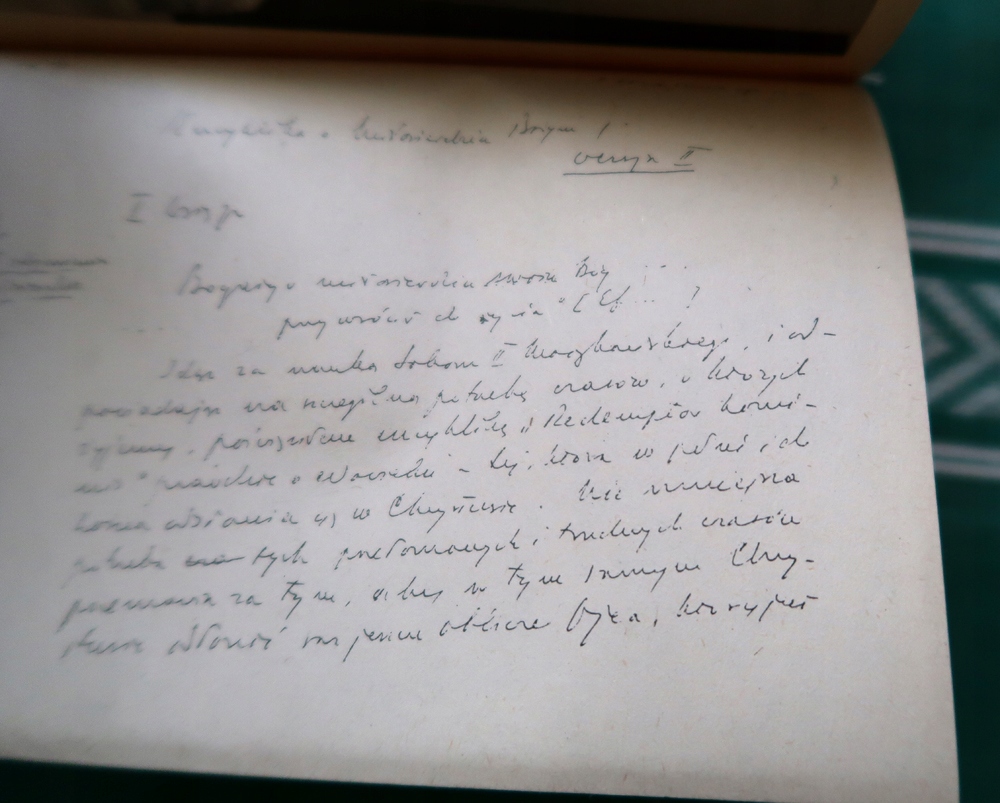 Encyklika o Miłosierdziu Bożym
wersja II
I wersja
Bogaty w miłosierdzie swoje Bóg
przywrócił do życia" [Ef ... ]
Idąc za nauką Soboru II Watykańskiego, i od-
powiadając na szczególną potrzebę czasów, w których
żyjemy, poświęciłem encyklikę "Redemptor homi-
nis" prawdzie o człowieku – tej, która w pełni i do
końca odsłania się w Chrystusie. Nie mniejsza
potrzeba tych przełomowych i trudnych czasów
przemawia za tym, aby w tym samym Chry-
stusie odsłonić raz jeszcze oblicze Ojca, który jest